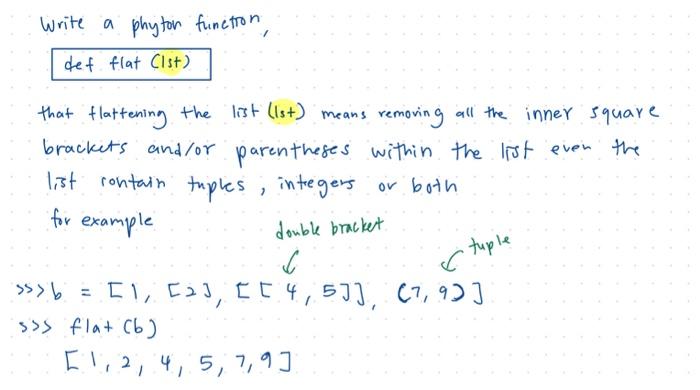 Write a phyton function,
def flat (lst)
that flattening the list (lst) means removing all the inner square
brackets and/or parentheses within the list even the
list contain tuples, integers or both
for example
double bracket
tuple
>>> b = [1, [2], [[4, 5]], (7, 9)]
>>> flat (b)
[1, 2, 4, 5, 7, 9]